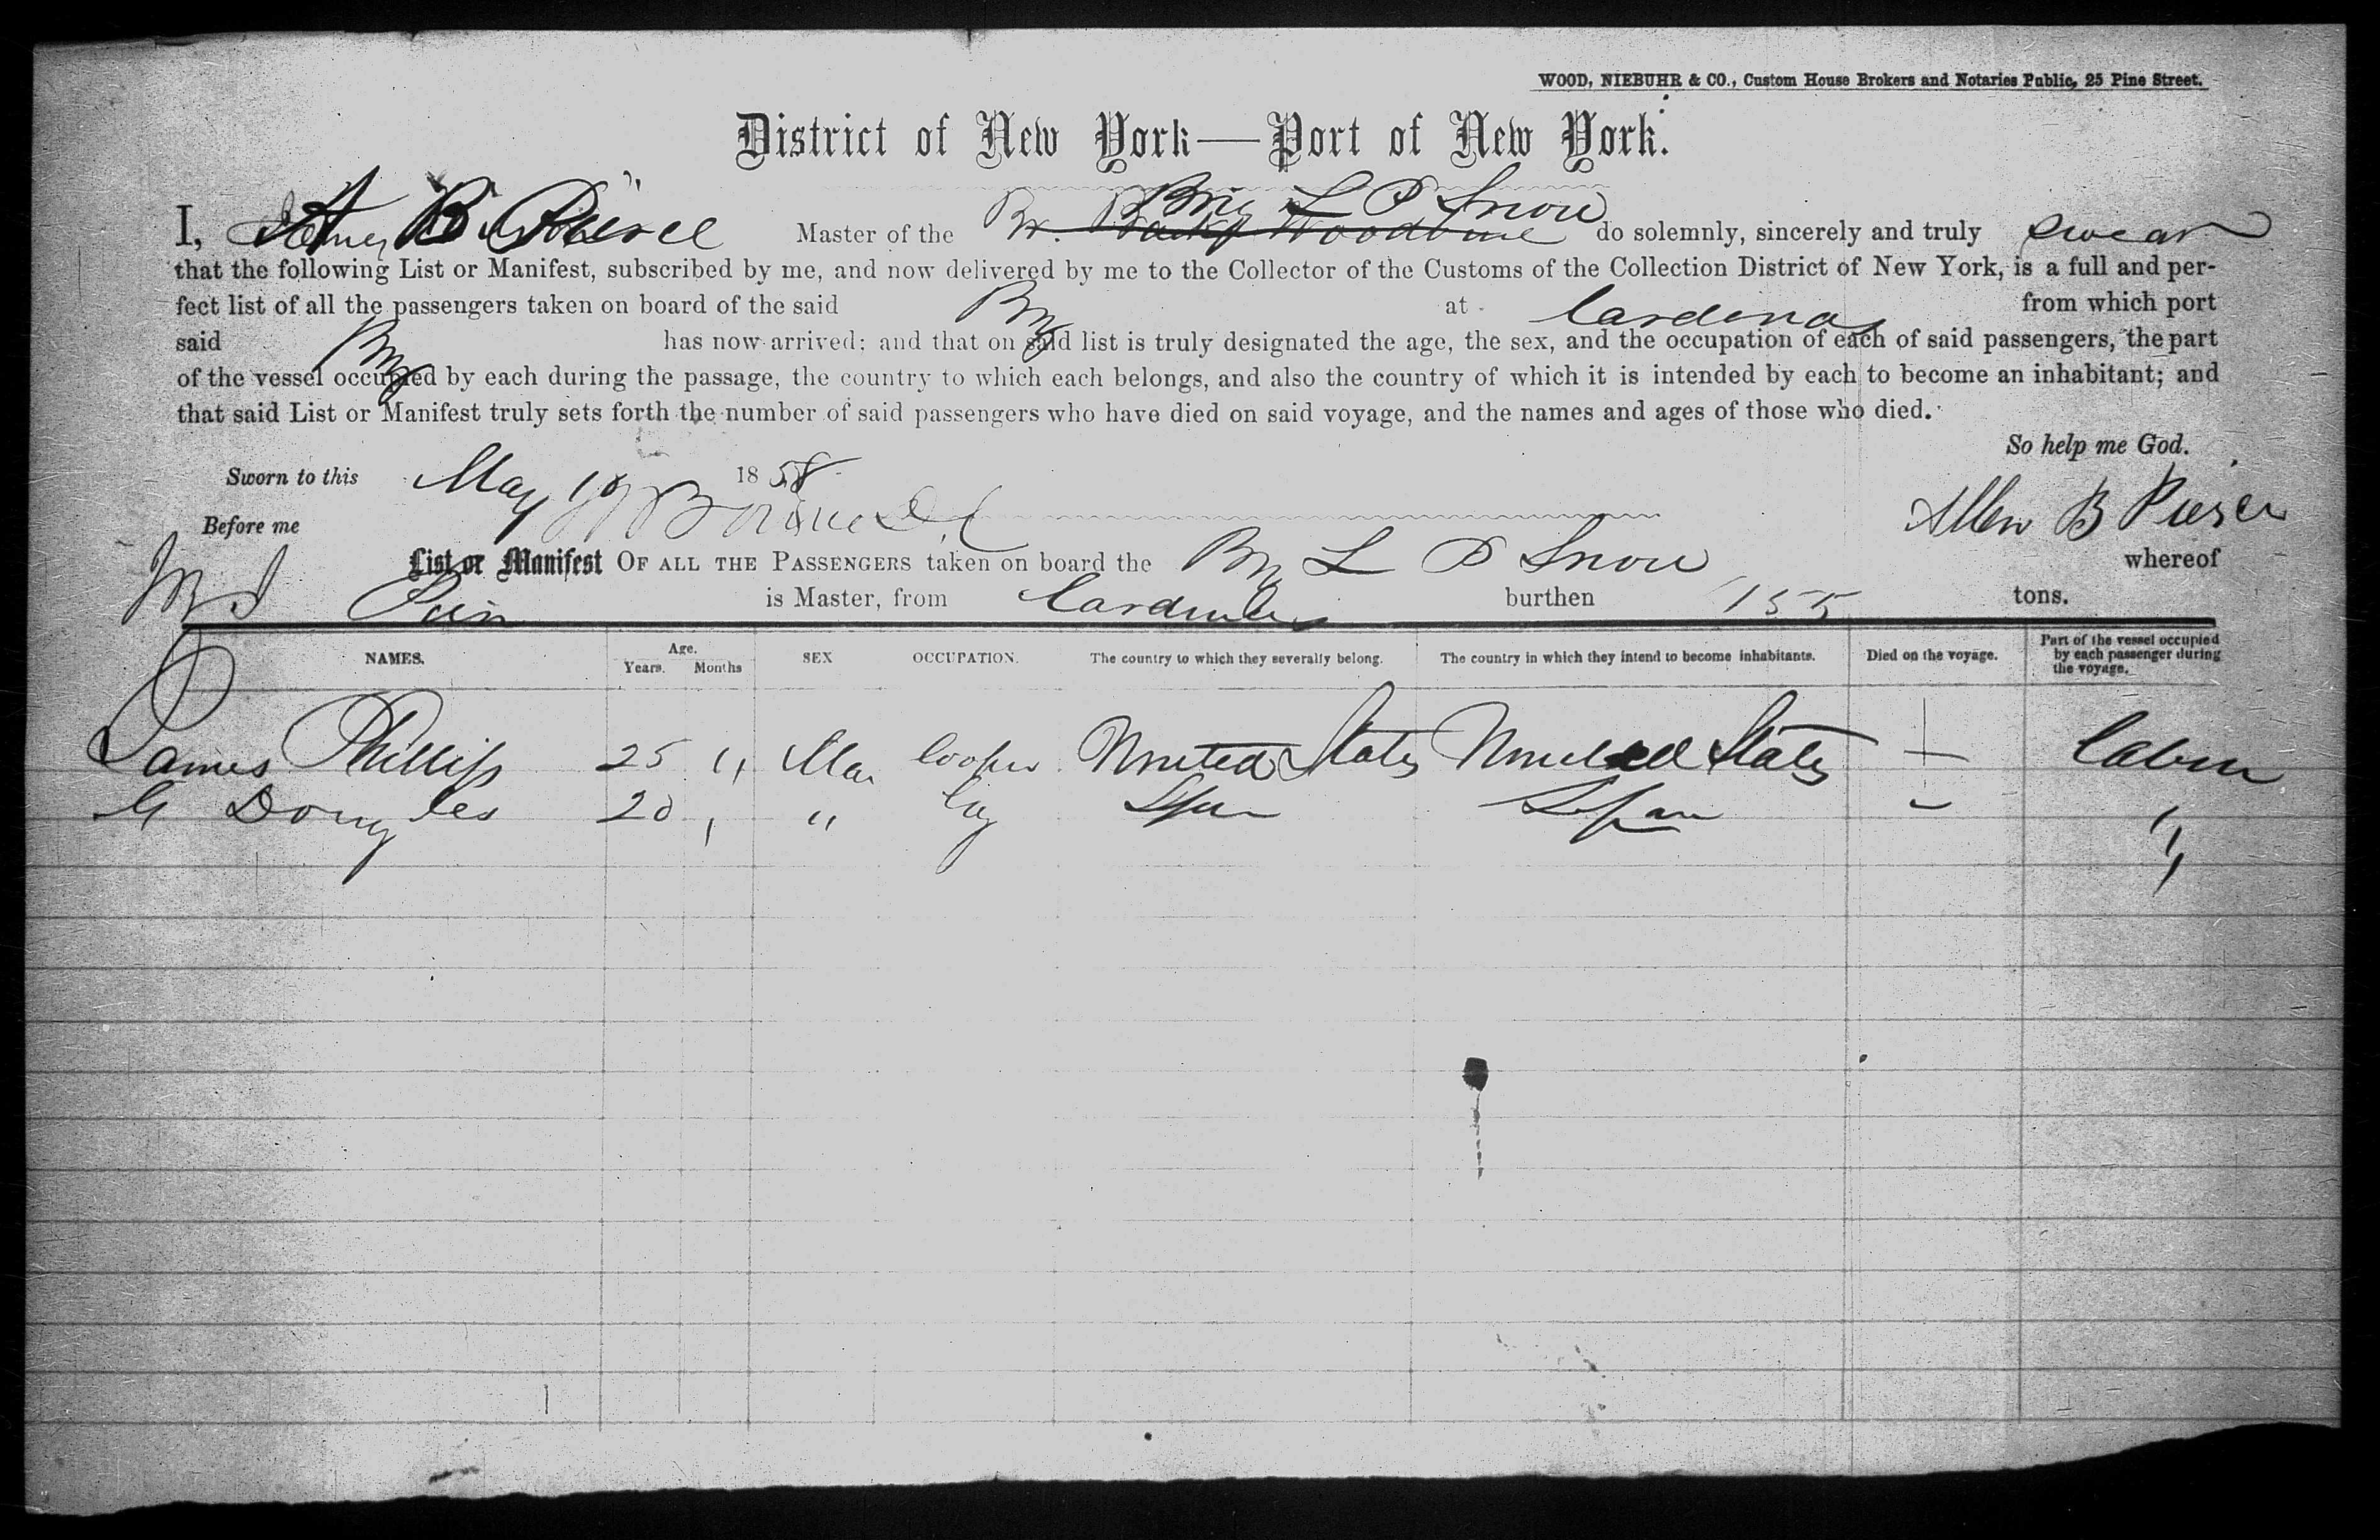 WOOD, NIEBUHR & CO., Custom House Brokers and Notaries Public, 25 Pine Street.
District of New York—Port of New York.
I, B. Pierce Master of the Brig L P Snow Br. Bark Woodbine do solemnly, sincerely and truly swear
that the following List or Manifest, subscribed by me, and now delivered by me to the Collector of the Customs of the Collection District of New York, is a full and per-
fect list of all the passengers taken on board of the said Brig at Cardenas from which port
said Brig has now arrived; and that on said list is truly designated the age, the sex, and the occupation of each of said passengers, the part
of the vessel occupied by each during the passage, the country to which each belongs, and also the country of which it is intended by each to become an inhabitant; and
that said List or Manifest truly sets forth the number of said passengers who have died on said voyage, and the names and ages of those who died.
So help me God.
Sworn to this May 18 1858
Before me Allen B Pierce
List or Manifest OF ALL THE PASSENGERS taken on board the Brig L P Snow whereof
is Master, from Cardenas burthen 155 tons.
NAMES. Age. Years. Months SEX OCCUPATION. The country to which they severally belong. The country in which they intend to become inhabitants. Died on the voyage. Part of the vessel occupied by each passenger during the voyage.
James Phillips 25 " Mal Cooper United States United States — Cabin
G 20 " " Spain Spain — "